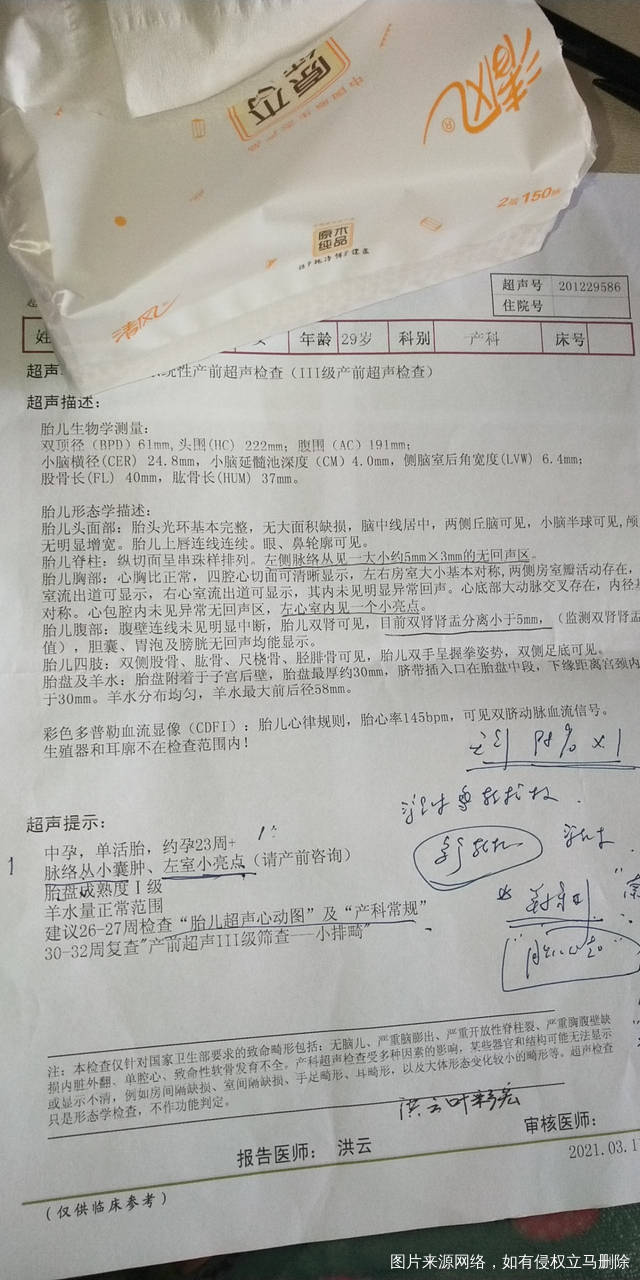 清风
®
原木
2层150抽
原木
纯品
清风
超声号 201229586
住院号
姓 女 年龄 29岁 科别 产科 床号
超声 统性产前超声检查（III级产前超声检查）
超声描述：
胎儿生物学测量：
双顶径（BPD）61mm,头围(HC) 222mm；腹围（AC）191mm；
小脑横径(CER) 24.8mm，小脑延髓池深度（CM）4.0mm，侧脑室后角宽度(LVW) 6.4mm；
股骨长(FL) 40mm，肱骨长(HUM) 37mm。
胎儿形态学描述：
胎儿头面部：胎头光环基本完整，无大面积缺损，脑中线居中，两侧丘脑可见，小脑半球可见,颅
无明显增宽。胎儿上唇连线连续。眼、鼻轮廓可见。
胎儿脊柱：纵切面呈串珠样排列。左侧脉络丛见一大小约5mm×3mm的无回声区。
胎儿胸部：心胸比正常，四腔心切面可清晰显示，左右房室大小基本对称,两侧房室瓣活动存在，
室流出道可显示，右心室流出道可显示，其内未见明显异常回声。心底部大动脉交叉存在，内径基
对称。心包腔内未见异常无回声区，左心室内见一个小亮点。
胎儿腹部：腹壁连线未见明显中断，胎儿双肾可见，目前双肾肾盂分离小于5mm，（监测双肾肾盂
值），胆囊、胃泡及膀胱无回声均能显示。
胎儿四肢：双侧股骨、肱骨、尺桡骨、胫腓骨可见，胎儿双手呈握拳姿势，双侧足底可见。
胎盘及羊水：胎盘附着于子宫后壁，胎盘最厚约30mm，脐带插入口在胎盘中段，下缘距离宫颈内
于30mm。羊水分布均匀，羊水最大前后径58mm。
彩色多普勒血流显像（CDFI）：胎儿心律规则，胎心率145bpm，可见双脐动脉血流信号。
生殖器和耳廓不在检查范围内！
98% x 1
超声提示：
1
中孕，单活胎，约孕23周+
脉络丛小囊肿、左室小亮点（请产前咨询）
胎盘成熟度Ⅰ级
羊水量正常范围
建议26-27周检查“胎儿超声心动图”及“产科常规”
30-32周复查"产前超声III级筛查——小排畸"
注：本检查仅针对国家卫生部要求的致命畸形包括：无脑儿、严重脑膨出、严重开放性脊柱裂、严重胸腹壁缺
损内脏外翻、单腔心、致命性软骨发育不全。产科超声检查受多种因素的影响，某些器官和结构可能无法显示
或显示不清，例如房间隔缺损、室间隔缺损、手足畸形、耳畸形，以及大体形态变化较小的畸形等。超声检查
只是形态学检查，不作功能判定。
报告医师： 洪云
审核医师：
2021.03.1
（仅供临床参考）
图片来源网络，如有侵权立马删除